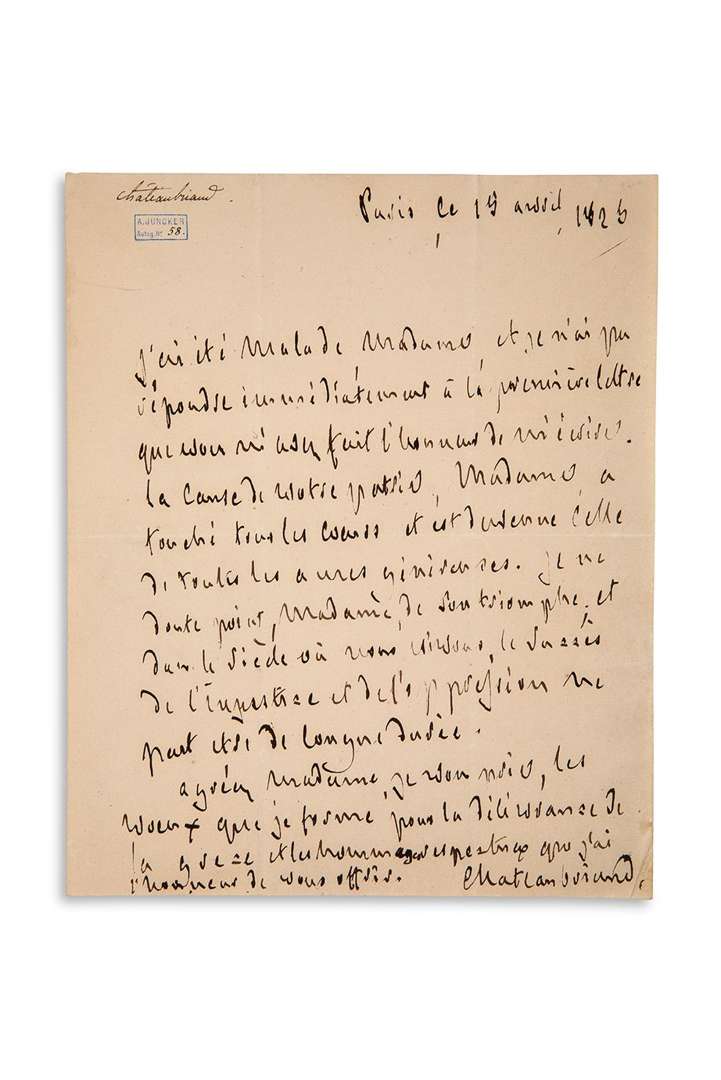 chateaubriand.
A. JUNCKER
Autog. N° 58.
Paris ce 15 avril 1825
j'ai été malade Madame, et je n'ai pu
répondre immédiatement à la première lettre
que vous m'avez fait l'honneur de m'écrire.
la cause de votre patrie, Madame, a
touché tous les cœurs et est devenue celle
de toutes les ames généreuses. je ne
doute point, Madame, de son triomphe, et
dans le siècle où nous vivons, le succès
de l'injustice et de l'oppression ne
peut etre de longue durée.
agréez madame, je vous prie, les
voeux que je forme pour la délivrance de
la grece et les hommages respectueux que j'ai
l'honneur de vous offrir. Chateaubriand.